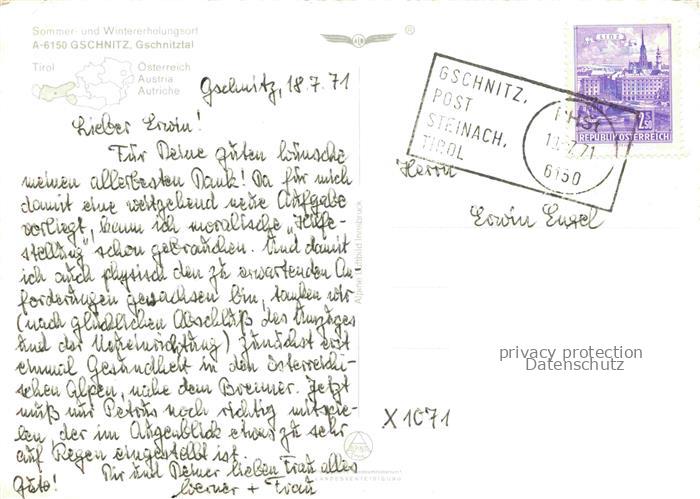 Sommer- und Wintererholungsort
A-6150 GSCHNITZ, Gschnitztal
Tirol
Österreich
Austria
Autriche
Gschnitz, 18.7.71
Lieber Erwin!
Für Deine guten Wünsche
meinen allerbesten Dank! Da für mich
damit eine weitgehend neue Aufgabe
vorliegt, kann ich moralische „Hilfe-
stellung" schon gebrauchen. Und damit
ich auch physisch den zu erwartenden An-
forderungen gewachsen bin, tanken wir
(nach glücklichen Abschluß des Umzuges
und der Neueinrichtung) zunächst erst
einmal Gesundheit in den österreichi-
schen Alpen, nahe dem Brenner. Jetzt
muß nur Petrus noch richtig mitspie-
len, der im Augenblick etwas zu sehr
auf Regen eingestellt ist.
Dir und Deiner lieben Frau alles
Gute!
Werner + Frau
LINZ
2.50
REPUBLIK ÖSTERREICH
GSCHNITZ,
POST
STEINACH,
TIROL
6150
Herrn
Erwin Engel
Alpine Luftbild Innsbruck
privacy protection
Datenschutz
X1071
LANDESVERTEIDIGUNG
®